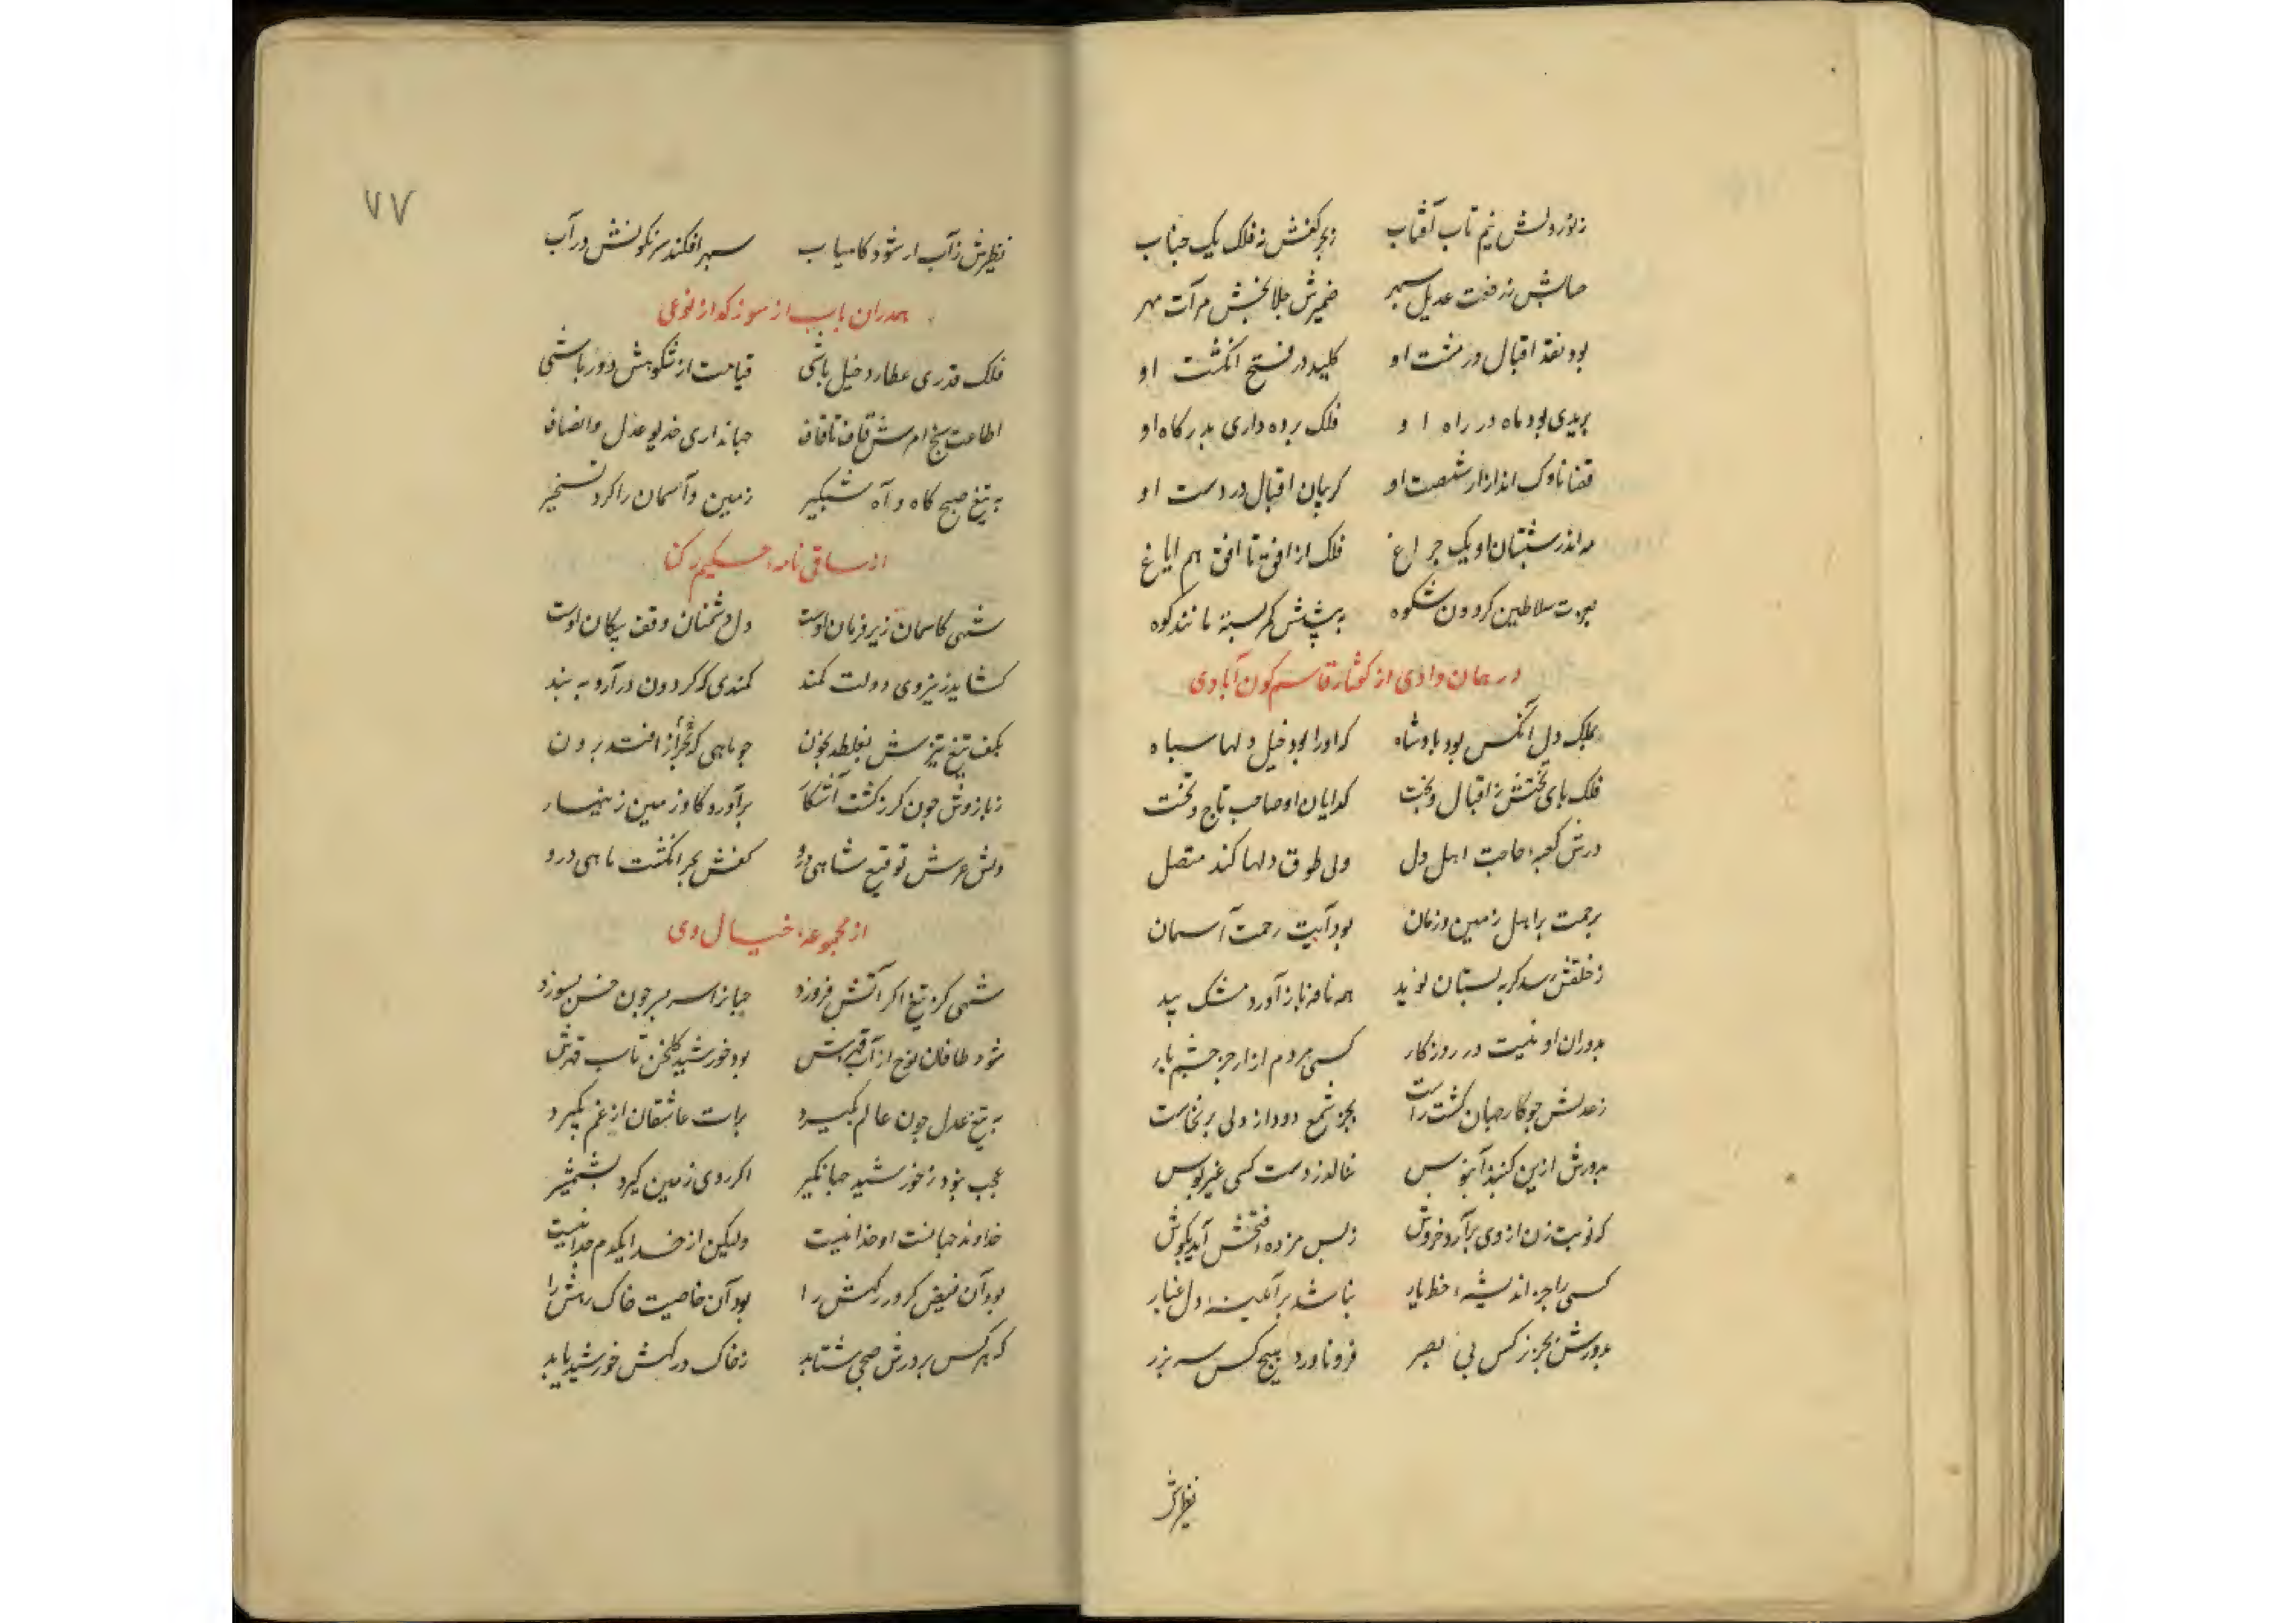 ز نور دلش نیم تاب آفتاب ز بحر کفش نه فلک یک حباب
ز رفعت عدیل سپهر ضمیرش جلا بخش مرآت مهر
بود نقد اقبال در مشت او کلید در فتح انکشت او
بریدی بود ماه در راه او فلک برده داری بدرکاه او
قضا ناوک انداز از شصت او کریبان اقبال در دست او
مه اندر شبستان او یک جراغ فلک از افق تا افق هم ایاغ
سلاطین کردون شکوه به پیشش کمر بسته مانند کوه
در همان وادی از کفتار قاسم کون آبادی
بملک دل آنکس بود بادشاه که او را بود خیل دلها سباه
فلک بای تختش ز اقبال و بخت کدایان او صاحب تاج و تخت
درش کعبهٔ حاجت اهل دل ولی طوق دلها کند متصل
برحمت بر اهل زمین و زمان بود آیت رحمت آسمان
ز خلقش رسد کر به بستان نوید همه نافه بار آورد مشک بید
بدوران او نیست در روزکار کسی مردم ازار جز جشم یار
ز عدلش جو کار جهان کشت راست بجز شمع دود از دلی برنخاست
بدورش ازین کنبذ آبنوس ننالد ز دست کسی غیر کوس
که نوبت زن از وی برآرد خروش ز بس مژدهٔ فتحش آید بکوش
کسی را جز اندیشهٔ خط یار نباشد بر آئینهٔ دل غبار
بدورش بجز نرکس بی بصر فرو ناورد هیچ کس سر بزر
نظیرش
۷۷
نظیرش ز آب ار شود کامیاب سبهر افکند سرنکونش در آب
همدران باب از سوز کداز نوعی
فلک قدری عطارد خیل باشی قیامت از شکوهش دور باشی
اطاعت سنج امرش قاف تا قاف جهانداری خدیو عدل و انصاف
به تیغ صبح کاه و آه شبکیر زمین و آسمان را کرد تسخیر
از ساقی نامهٔ حکیم رکنا
شهی کاسمان زیر فرمان اوست دل دشمنان وقف بیکان اوست
کشاید ز نیروی دولت کمند کمندی که کردون درآرد به بند
بکف تیغ تیزش بغلطد بخون جو ماهی که از بحر افتد برون
ز بازوش جون کرز کشت آشکار برآورد کاو زمین زینهار
دلش عرش توقیع شاهی درو کفش بحر انکشت ماهی درو
از مجموعهٔ خیال وی
شهی کز تیغ اکر آتش فروزد جهانرا سر بسر جون خس بسوزد
شود طوفان نوح از آب قهرش بود خورشید کلخن تاب قهرش
به تیغ عدل جون عالم بکیرد برات عاشقان از غم بکیرد
عجب نبود ز خورشید جهانکیر اکر روی زمین کیرد بشمشیر
خداوند جهانست او خدا نیست ولیکن از خدا یکدم جدا نیست
بود آن فیض کر درکهش را بود آن خاصیت خاک رهش را
که هر کس بر درش صبحی شتابد ز خاک درکهش خورشید یابد